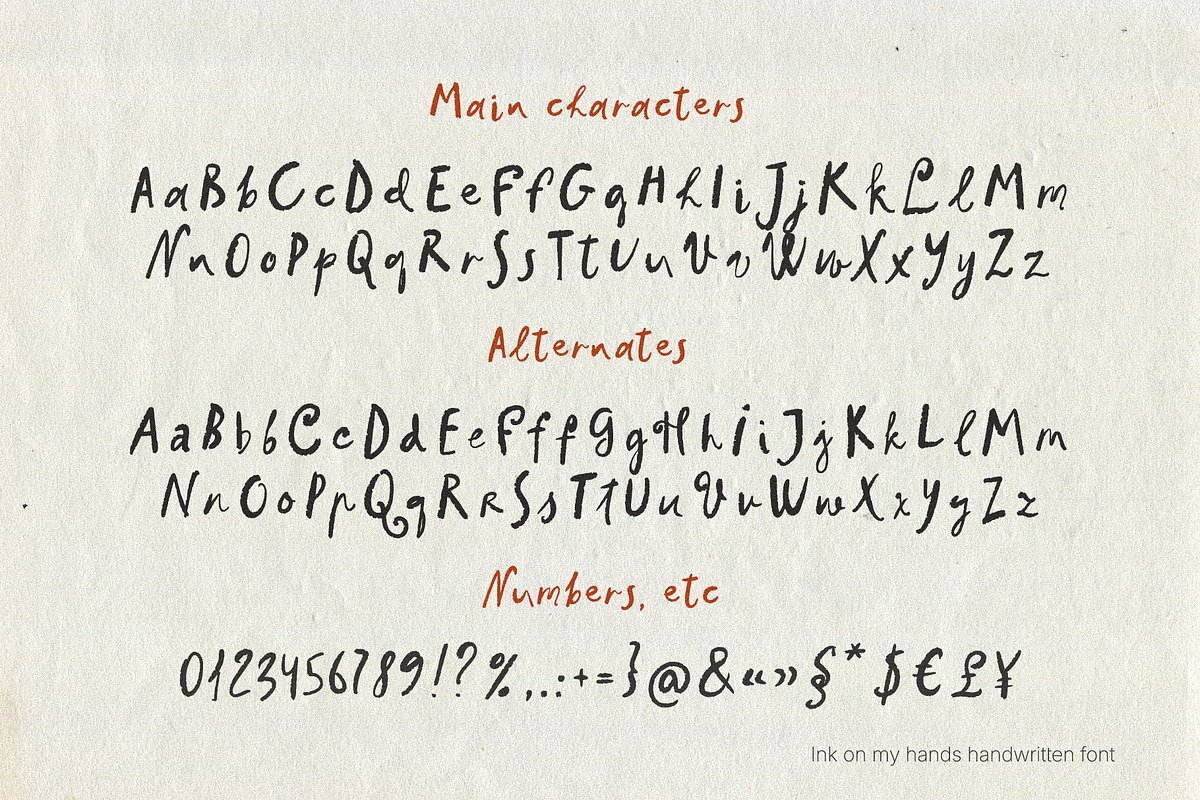 Main characters
AaBbCcDdEeFfGgHhIiJjKkLlMm
NnOoPpQqRrSsTtUuVvWwXxYyZz
Alternates
AaBbbCcDdEeFffGgHhIiJjKkLlMm
NnOoPpQqRrSsTtUuVvWwXxYyZz
Numbers, etc
0123456789!?%,.:+=}@&«»§*$€£¥
Ink on my hands handwritten font